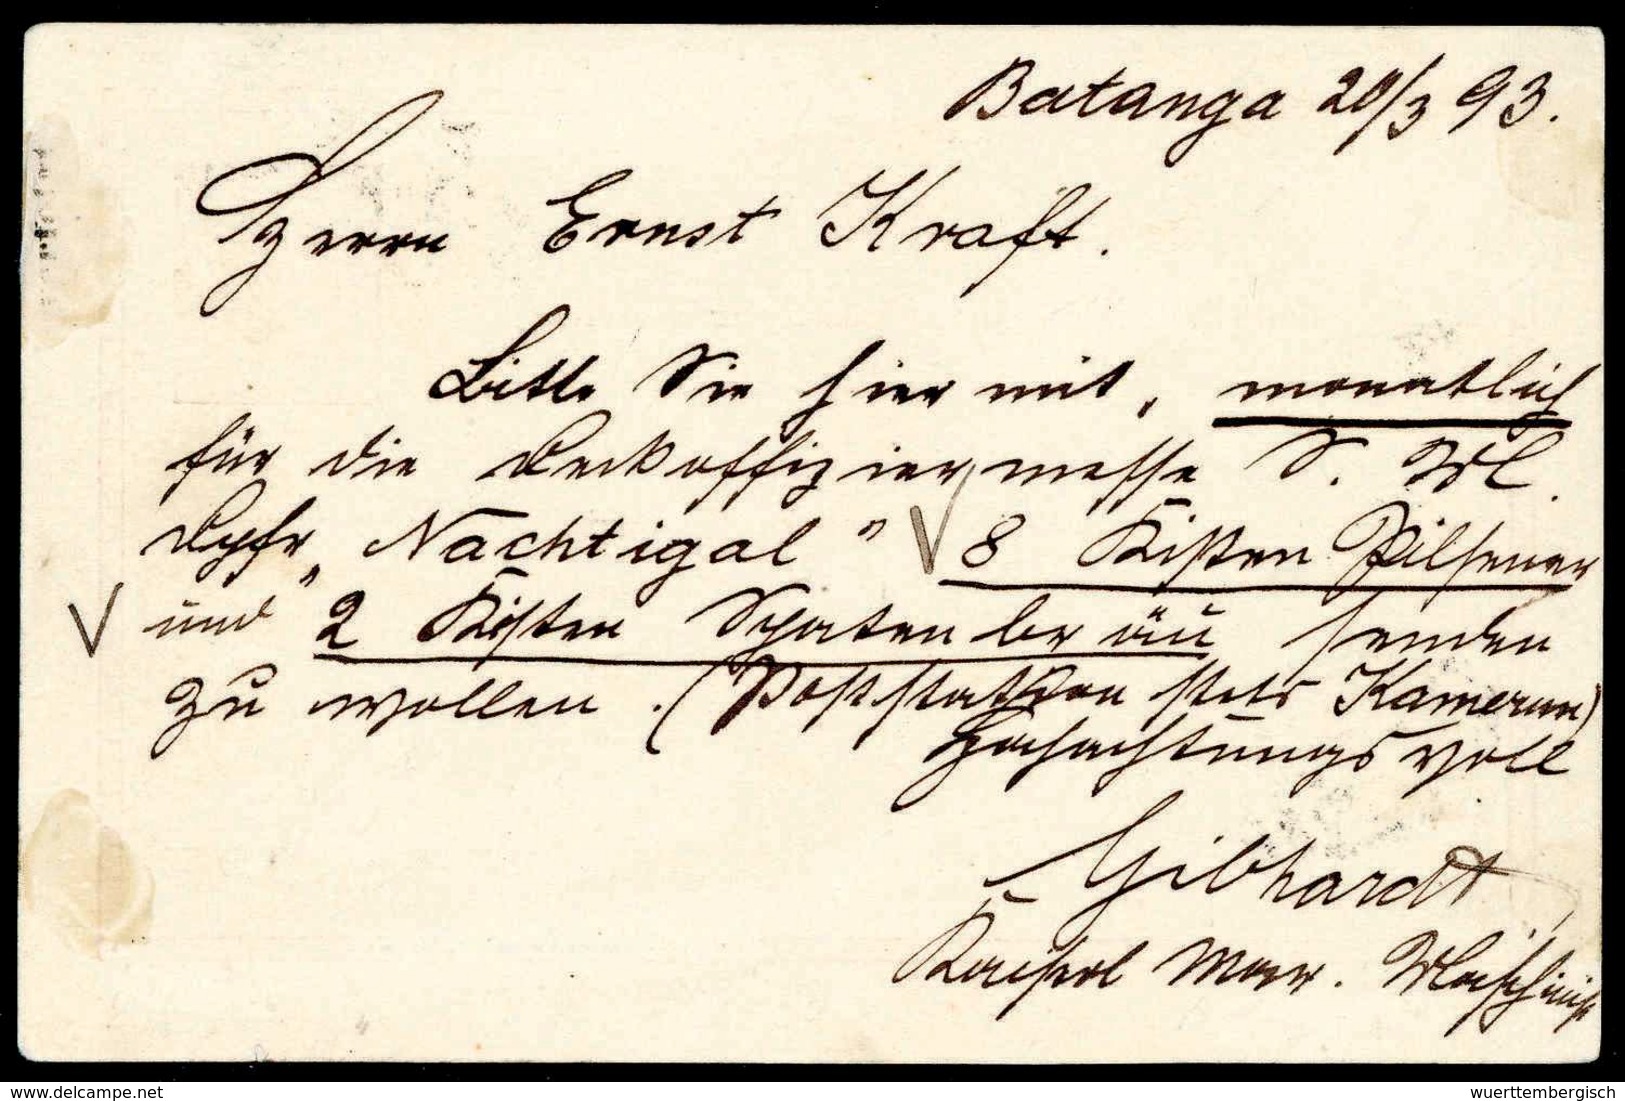 Batanga 20/3 93.
Herrn Ernst Kraft.
Bitte Sie hiermit, monatlich
für die Deckoffiziermesse S. M.
Dpfr „Nachtigal" 8 Kisten Pilsener
und 2 Kisten Spatenbräu senden
zu wollen. (Poststation stets Kamerun)
Hochachtungsvoll
Gibhardt
Kaiserl Mar. Maschinist
www.delcampe.net
wuerttembergisch